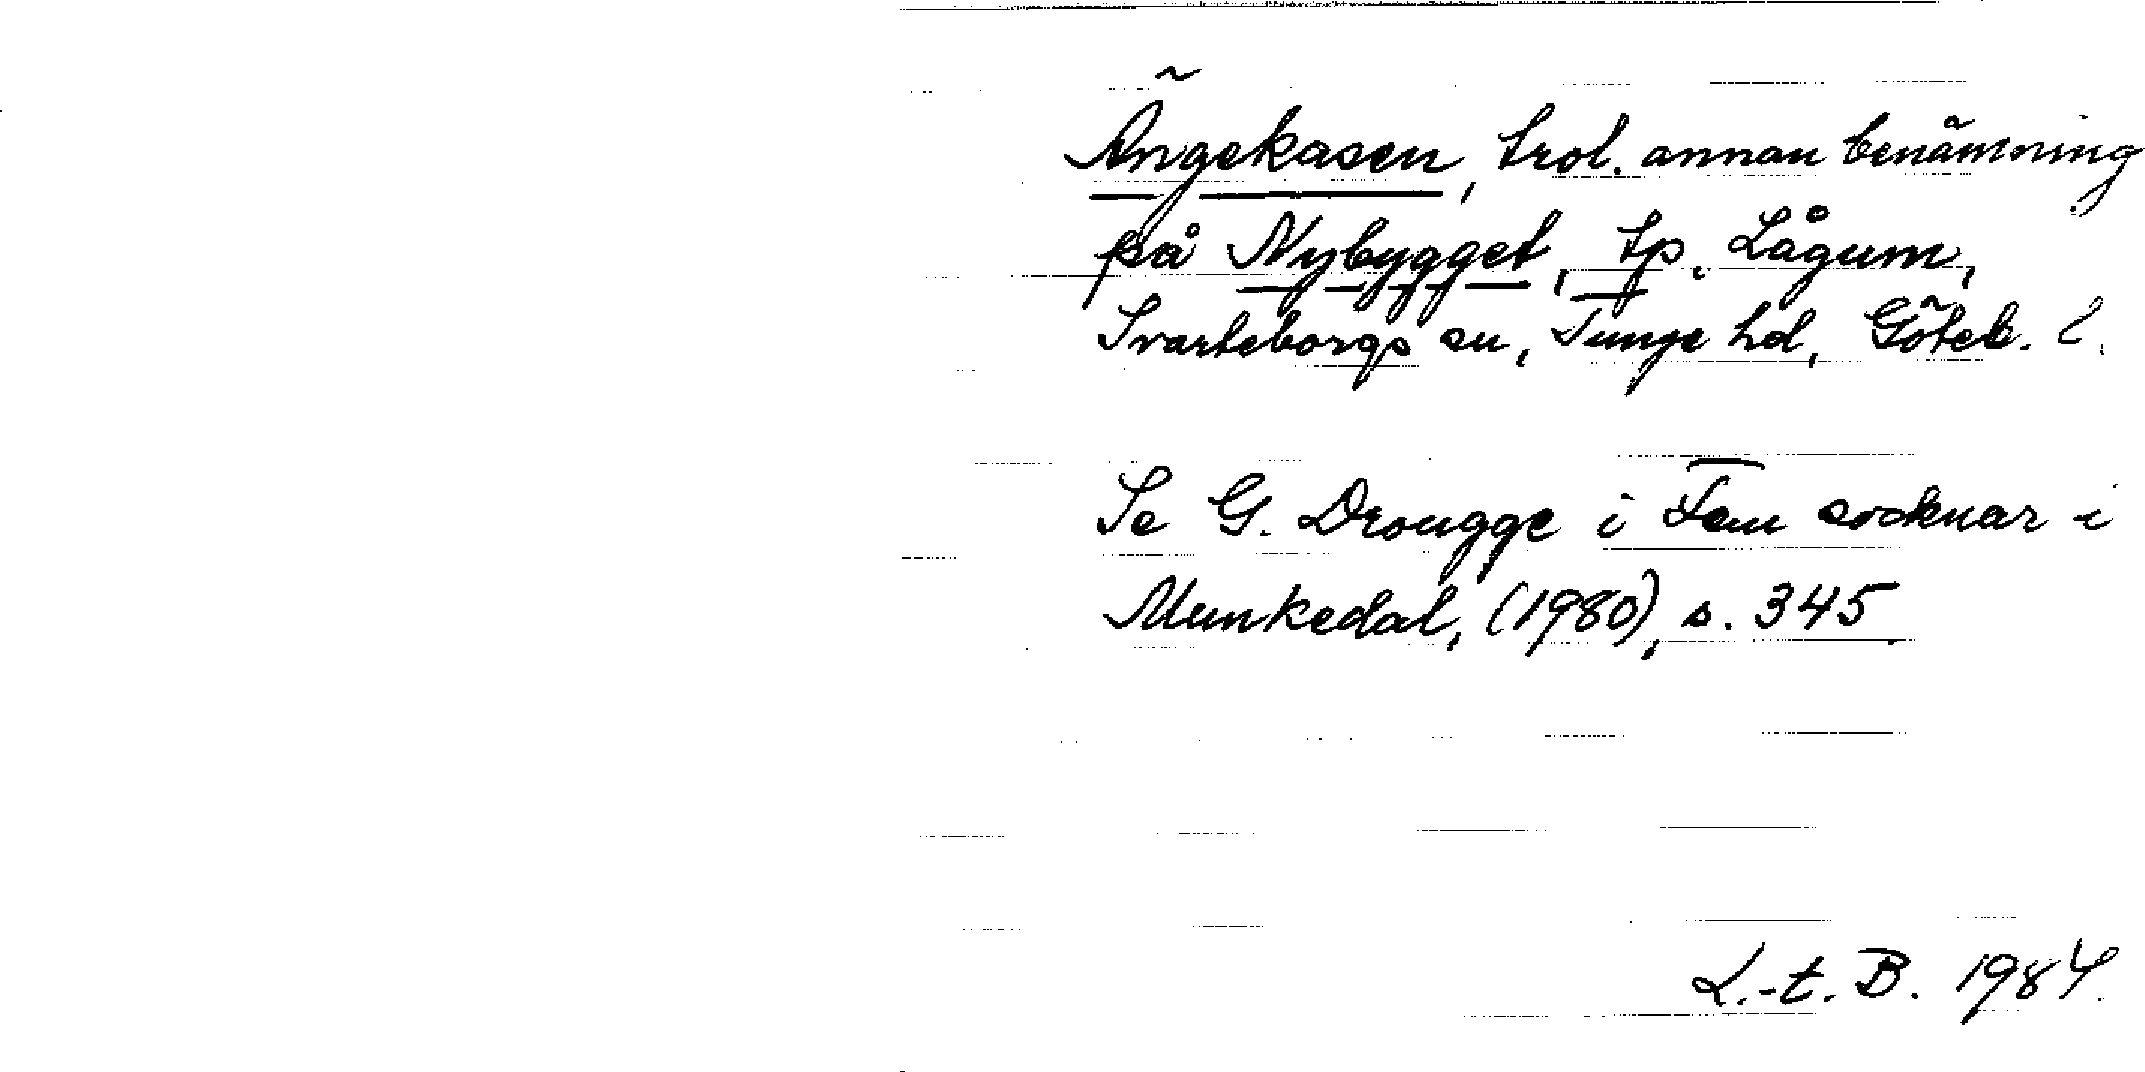 Ängekasen, trol. annan benämning
på Nybygget, tp. Lågum,
Svarteborgs sn, Tunge hd, Göteb. l.
Se G. Drougge i Fem socknar i
Munkedal, (1980), s. 345.
L.-t. B. 1984.